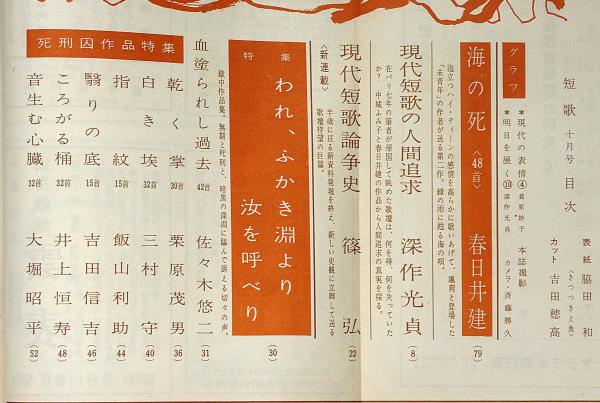 短歌 十月号 目次
表紙 脇田 和
〈きつつきと魚〉
カット 吉田穂高
グラフ
＊現代の表情④ 葛原妙子 本誌撮影
＊明日を展く⑩ 深作光貞 カメラ・斉藤勝久
海の死〈48首〉 春日井建 (79)
泡立つハイ・ティーンの感情を高らかに歌いあげて、颯爽と登場した
「未青年」の作者が送る第二作。緑の雨に甦る海の唄。
現代短歌の人間追求 深作光貞 (8)
在パリ七年の筆者が帰国して眺めた歌壇は、何を得、何を失っていた
か？ 中城ふみ子と春日井建の作品から人間追求の真実を探る。
現代短歌論争史 篠 弘 (22)
〈新連載〉
半歳に亘る新資料発掘を終え、新しい史観に立脚して送る
歌壇待望の巨篇。
特集 われ、ふかき淵より
汝を呼べり (30)
獄中作品集。無期と死刑と、暗黒の深淵に臨んで訴える切々の声。
血塗られし過去 42首 佐々木悠二 (31)
死刑囚作品特集
乾く掌 30首 栗原茂男 (36)
白き埃 32首 三村 守 (40)
指紋 15首 飯山利助 (44)
翳りの底 15首 吉田信吉 (46)
ころがる桶 32首 井上恒寿 (48)
音生む心臓 32首 大堀昭平 (52)